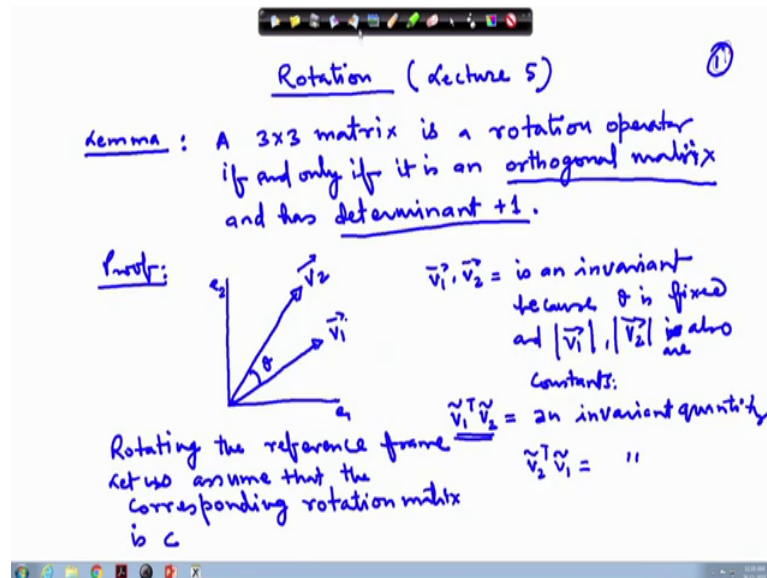 Rotation (Lecture 5)
1
Lemma : A 3x3 matrix is a rotation operator
if and only if it is an orthogonal matrix
and has determinant +1.
Proof:
e2
v2
v1
θ
e1
v1 . v2 = is an invariant
because θ is fixed
and |v1|, |v2| is also
are
constants.
ṽ1ᵀ ṽ2 = an invariant quantity
ṽ2ᵀ ṽ1 = "
Rotating the reference frame
Let us assume that the
corresponding rotation matrix
is C